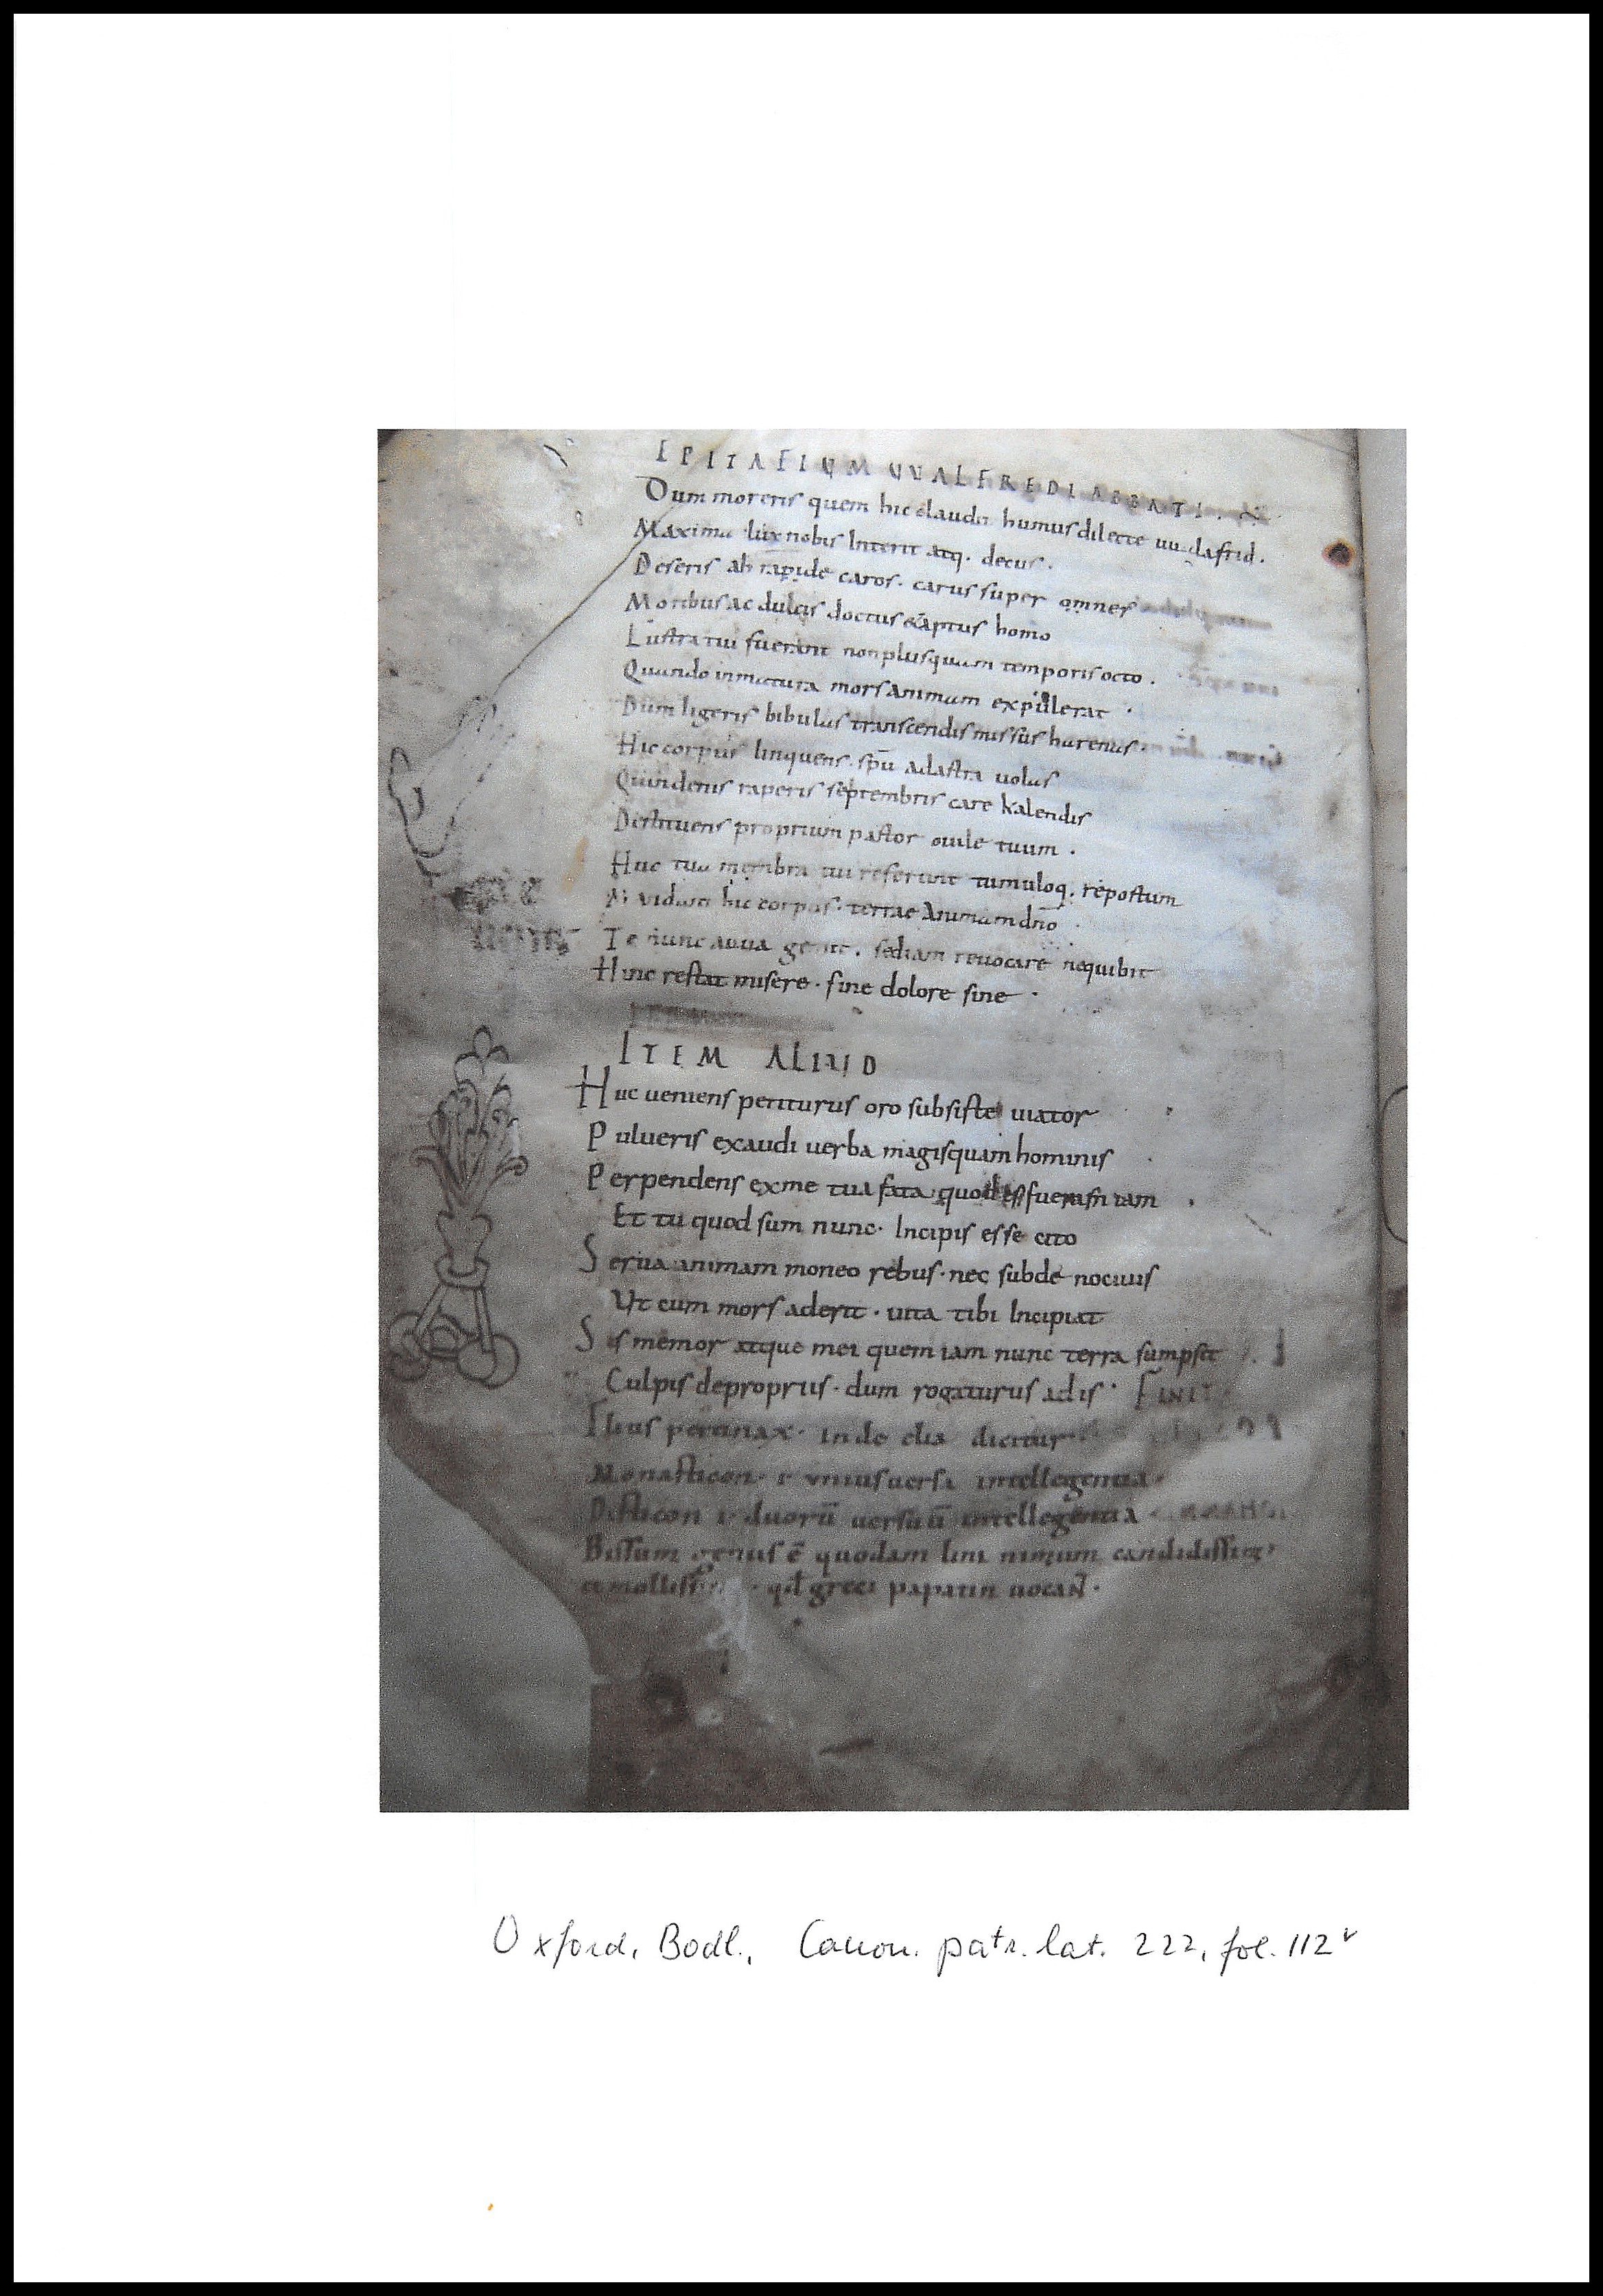 EPITAFIUM UUALFREDI ABBATI.
Dum moreris quem hic claudit humus dilecte uualafrid.
Maxima lux nobis Interit atq. decus.
Deseris ah rapide caros. carus super omnes
Moribus ac dulcis doctus & aptus homo
Lustra tui fuerant non plusquam temporis octo.
Quando inmatura mors animam expullerat.
Dum ligeris bibulas transcendis missus harenas
Hic corpus linquens. spu ad astra uolas
Quindenis raperis septembris care kalendis
Destituens proprium pastor ouile tuum.
Huc tua membra tui referunt tumuloq. repostum
hic corpus. terrae Animam dno
Te nunc auua gemit. sed iam reuocare nequibit
Hinc restat misere. sine dolore sine.
ITEM ALIUD
Huc ueniens periturus oro subsiste uiator
Pulueris exaudi uerba magis quam hominis
Perpendens ex me tua fata quod es fueram iam.
Et tu quod sum nunc. Incipis esse cito
Serua animam moneo rebus. nec subde nociuis
Ut cum mors aderit. uita tibi Incipiat
Sis memor atque mei quem iam nunc terra sumpsit
Culpis de propriis. dum rogaturus adis. FINIT
pertinax. inde elia dicitur
Monasticon. i. unius uersi intellegentia.
Disticon i. duorū uersuū intellegentia
Bissum genus ē quodam lini nimium candidissimi
et greci papatin uocant.
Oxford, Bodl., Canon. patr. lat. 222, fol. 112v